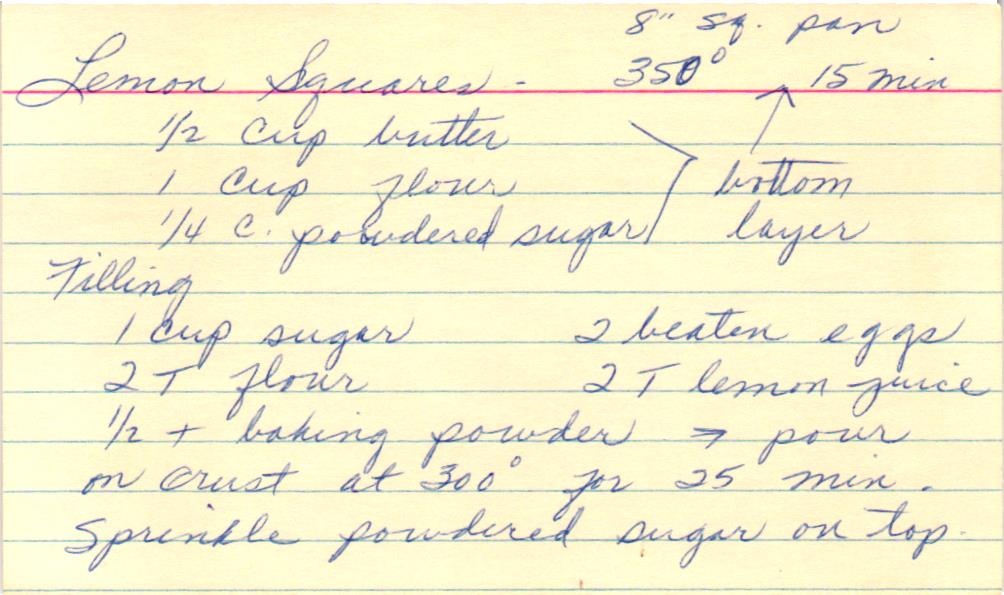 8" sq. pan
Lemon Squares - 350° 15 min
1/2 Cup butter
1 Cup flour bottom
1/4 C. powdered sugar layer
Filling
1 cup sugar 2 beaten eggs
2 T flour 2 T lemon juice
1/2 t baking powder → pour
on crust at 300° for 25 min.
Sprinkle powdered sugar on top.